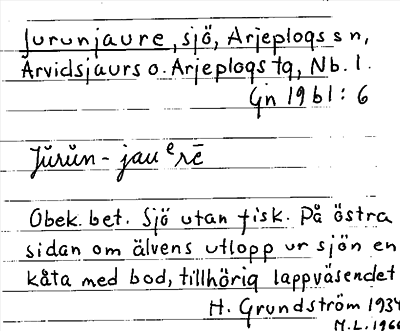 Jurunjaure, sjö, Arjeplogs sn,
Arvidsjaurs o. Arjeplogs tg, Nb. l.
Gn 1961: 6
Jŭrŭn-jauᵉrē
Obek. bet. Sjö utan fisk. På östra
sidan om älvens utlopp ur sjön en
kåta med bod, tillhörig lappväsendet
H. Grundström 1934
M.L. 196